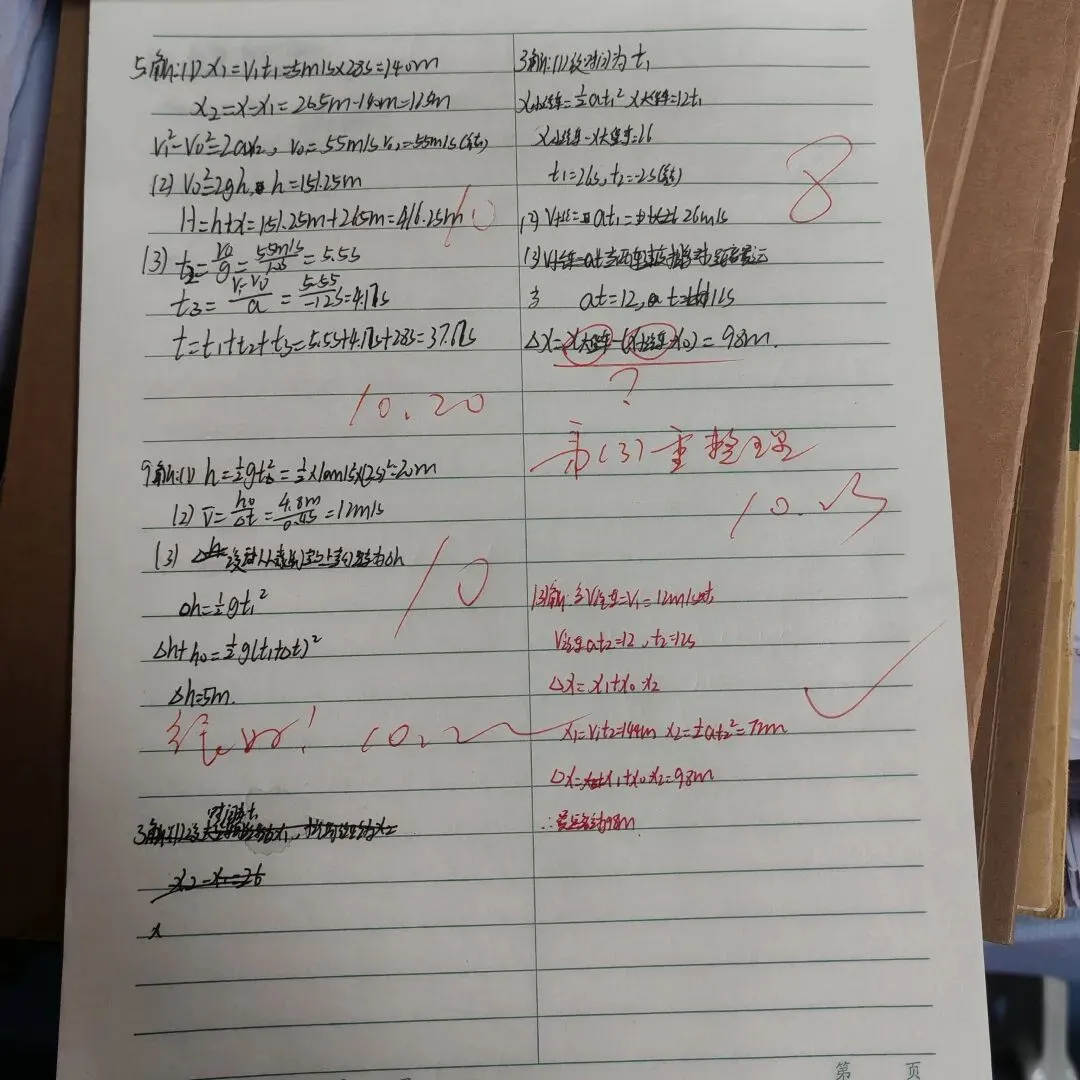 5解:(1).x₁=v₁t₁=5m/s×28s=140m
x₂=x-x₁=265m-140m=125m
V₁²-V₀²=2ax₂, V₀₁=55m/s V₀₂=-55m/s(舍)
(2) V₀²=2gh, h=151.25m
H=h+x=151.25m+265m=416.25m
10
(3) t₂=V₀/g=55m/s/10s=5.5s
t₃=V₁-V₀/a=5-55/-12s=4.17s
t=t₁+t₂+t₃=5.5s+4.17s+28s=37.67s
10.20
9解:(1) h=½gt₀²=½×10m/s²×(2s)²=20m
(2) V̄=h₀/Δt=4.8m/0.4s=12m/s
(3)
Δh=½gt₁²
Δh+h₀=½g(t₁+Δt)²
Δh=5m.
10
10.22
3解:(1)设
x₂-x₁=26
x
3解:(1)设时间为t₁
=½at₁² =12t₁
=26
t₁=26s, t₂=-2s(舍)
8
(2) =at₁= 26m/s
(3)
当 at=12, t= 12s
Δx= =98m.
?
第(3)重整理
10.25
(3)解:当 =V₁=12m/s时
at₂=12, t₂=12s
Δx=x₁+x₀-x₂
x₁=v₁t₂=144m x₂=½at₂²=72m
Δx=x₁+x₀-x₂=98m
∴最远 为98m.
第 页